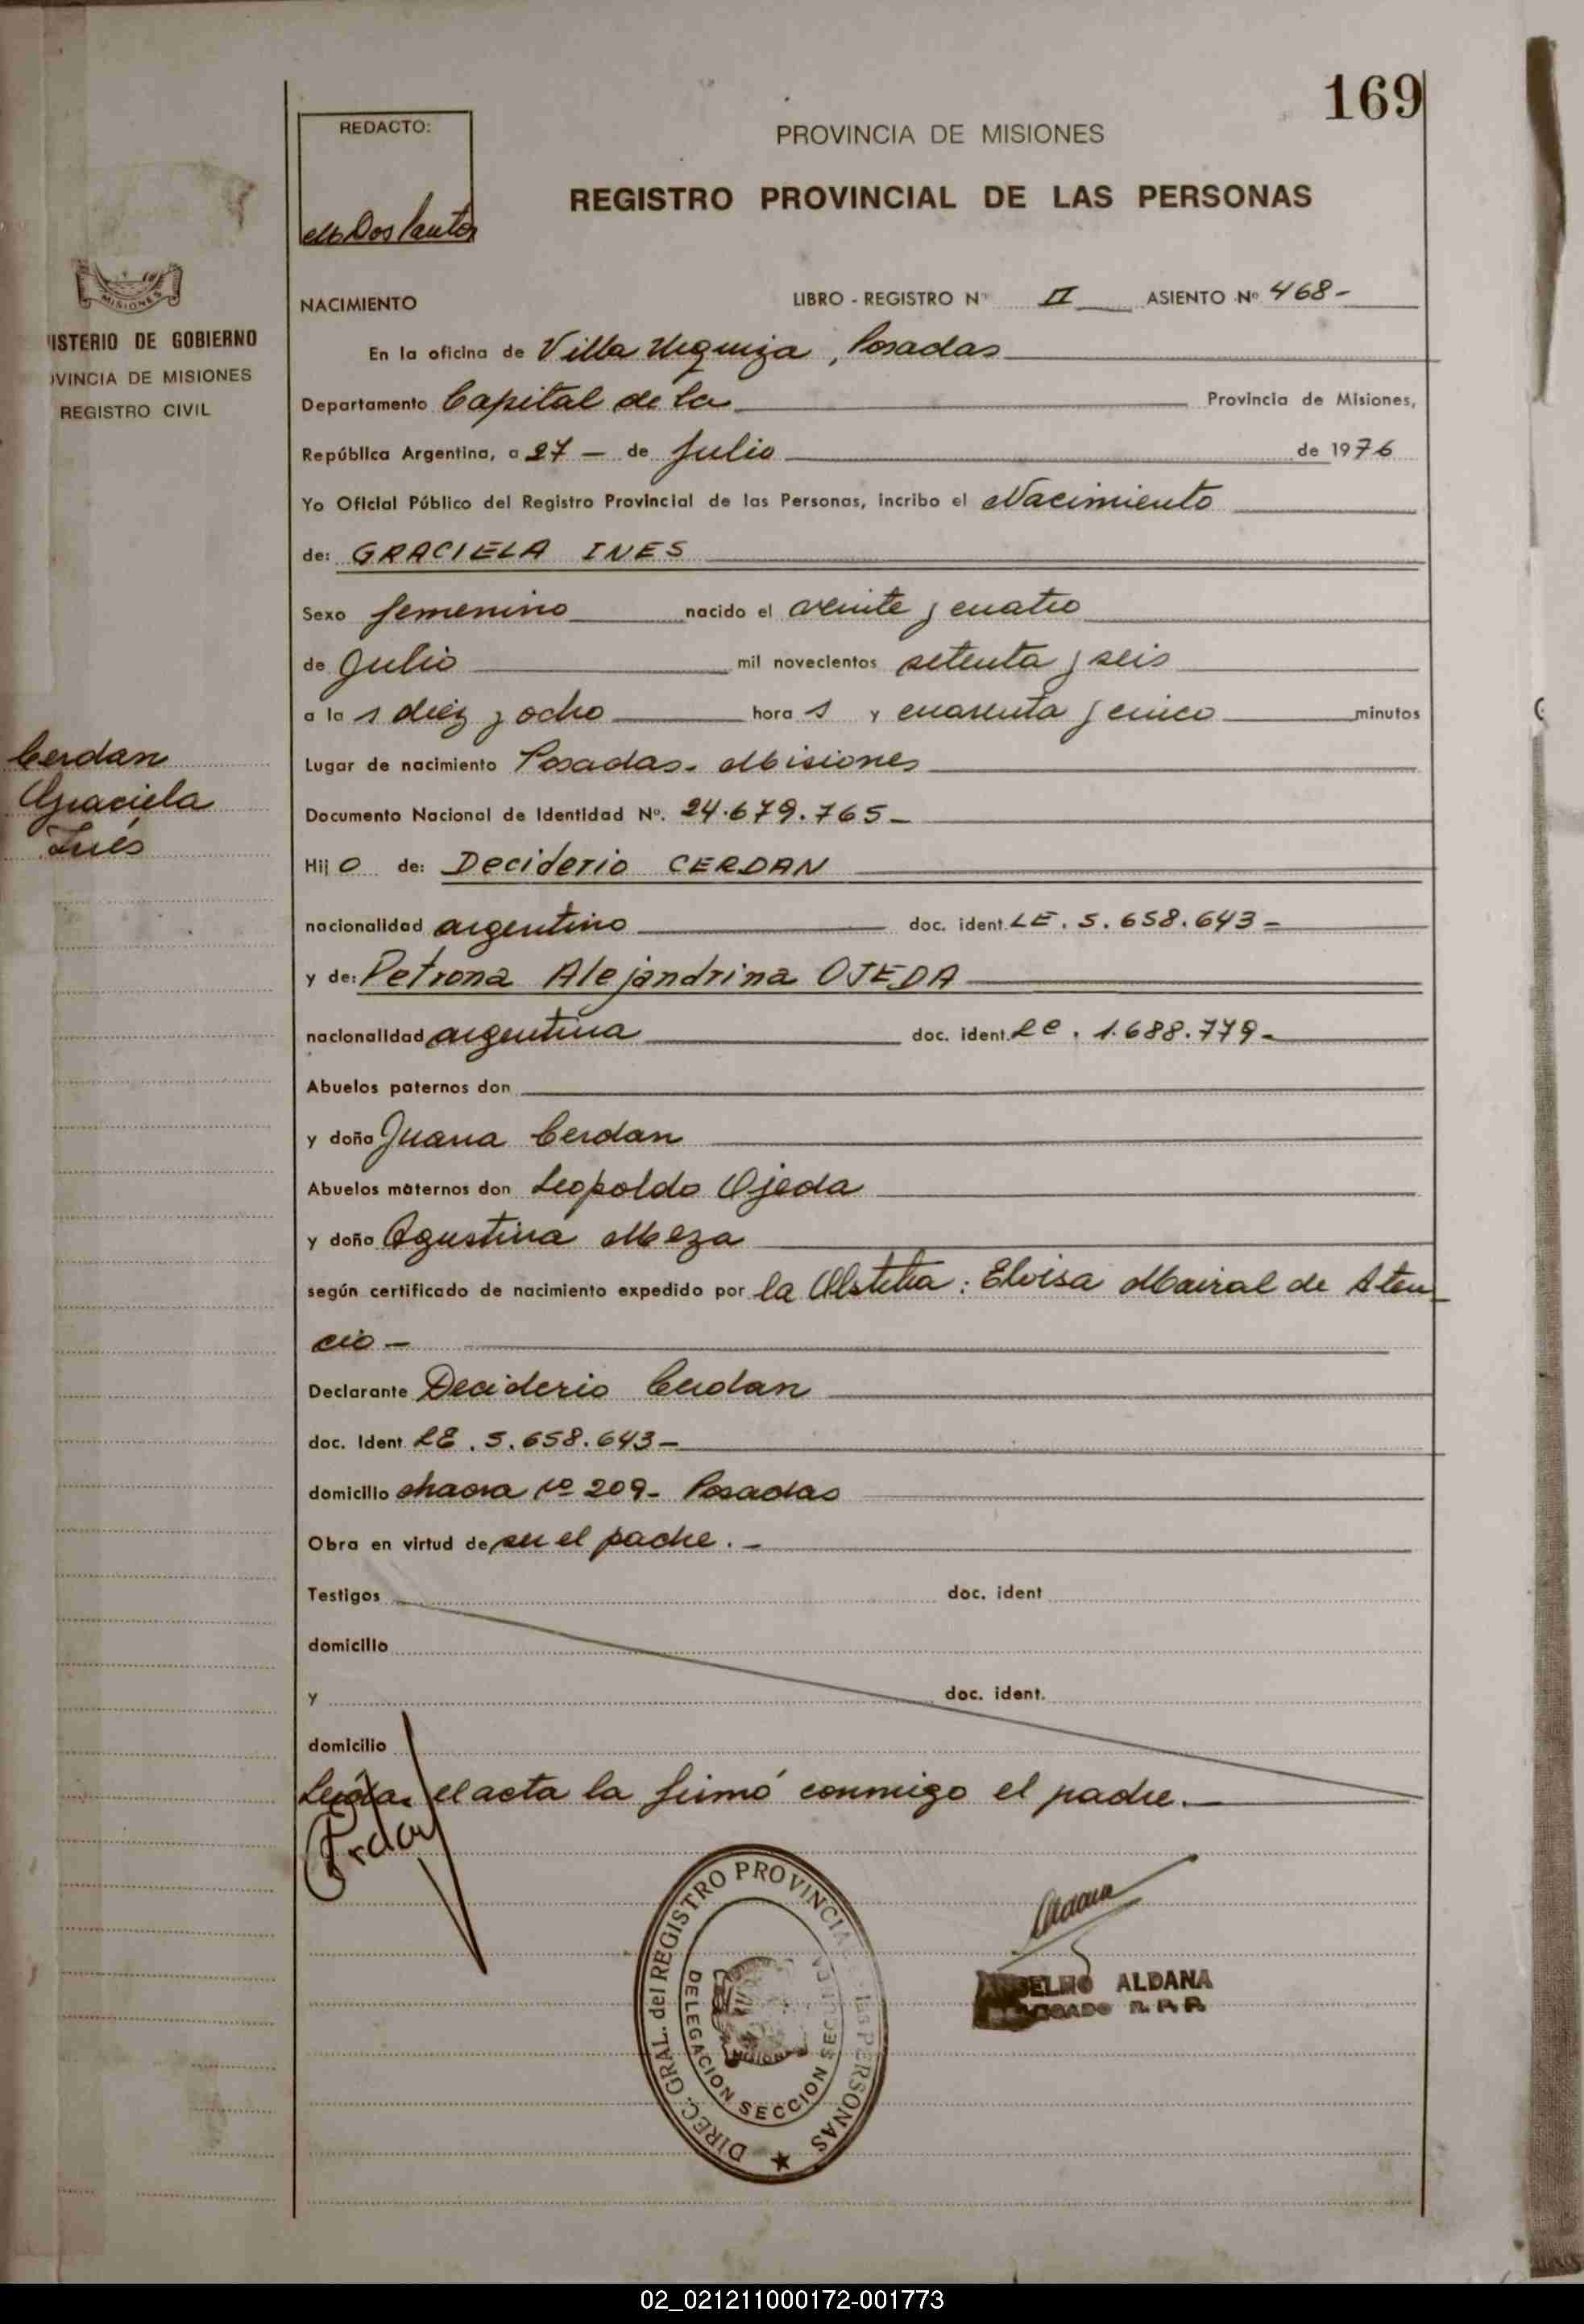 169
REDACTO:
M Dos Santos
PROVINCIA DE MISIONES
REGISTRO PROVINCIAL DE LAS PERSONAS
MISIONES
ISTERIO DE GOBIERNO
VINCIA DE MISIONES
REGISTRO CIVIL
NACIMIENTO LIBRO - REGISTRO Nº II ASIENTO Nº 468-
En la oficina de Villa Urquiza, Posadas
Departamento Capital de la Provincia de Misiones,
República Argentina, a 27 - de Julio de 1976
Yo Oficial Público del Registro Provincial de las Personas, incribo el Nacimiento
de: GRACIELA INES
Sexo femenino nacido el veinte y cuatro
de Julio mil novecientos setenta y seis
a la s diez y ocho hora s y cuarenta y cinco minutos
Cerdan
Graciela
Inés
Lugar de nacimiento Posadas - Misiones
Documento Nacional de Identidad Nº. 24.679.765-
Hij o de: Deciderio CERDAN
nacionalidad argentino doc. ident. LE. 5.658.643-
y de: Petrona Alejandrina OJEDA
nacionalidad argentina doc. ident. LC. 1.688.779-
Abuelos paternos don
y doña Juana Cerdan
Abuelos maternos don Leopoldo Ojeda
y doña Agustina Meza
según certificado de nacimiento expedido por la Obstetra: Eloisa Mairal de Aten
cio -
Declarante Deciderio Cerdan
doc. Ident LE. 5.658.643-
domicilio chacra Nº 209- Posadas
Obra en virtud de ser el padre. -
Testigos doc. ident
domicilio
y doc. ident.
domicilio
Leída el acta la firmó conmigo el padre.
DIREC. GRAL. del REGISTRO PROVINCIAL las PERSONAS
DELEGACION SECCION
MISIONES
Aldana
ANSELMO ALDANA
DELEGADO R. P. P.
02_021211000172-001773